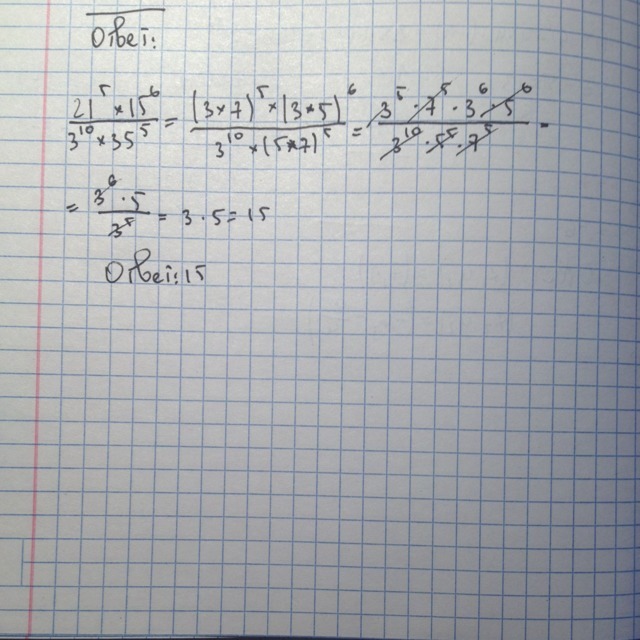 Ответ:
21⁵×15⁶/3¹⁰×35⁵ = (3×7)⁵×(3×5)⁶/3¹⁰×(5×7)⁵ = 3⁵·7⁵·3⁶·5⁶/3¹⁰·5⁵·7⁵ =
= 3⁶·5/3⁵ = 3·5=15
Ответ:15